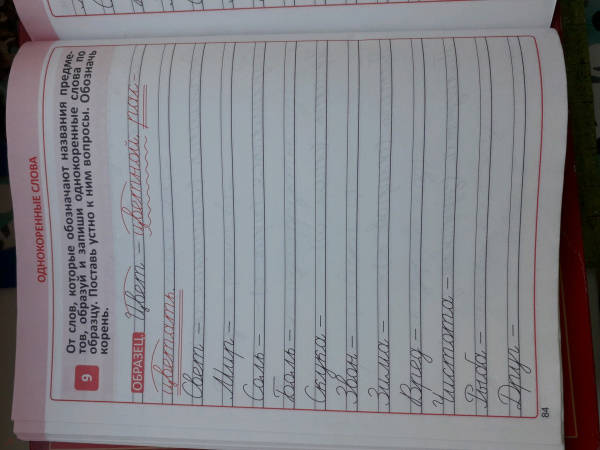 ОДНОКОРЕННЫЕ СЛОВА
9
От слов, которые обозначают названия предме-
тов, образуй и запиши однокоренные слова по
образцу. Поставь устно к ним вопросы. Обозначь
корень.
ОБРАЗЕЦ. Цвет – цветной, рас-
цветать.
Свет –
Мир –
Соль –
Боль –
Скука –
Звон –
Зима –
Вред –
Чистота –
Рыба –
Друг –
84